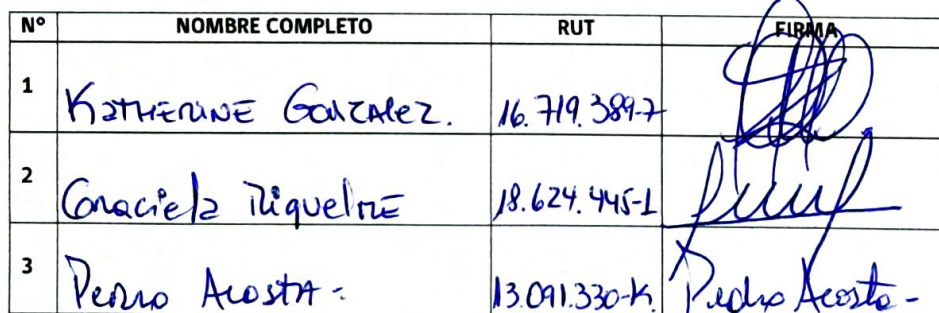 N° NOMBRE COMPLETO RUT FIRMA
1 KATHERINE GONZALEZ. 16.719.389-7
2 Graciela RiquelME 18.624.445-1
3 Pedro Acosta - 13.091.330-K Pedro Acosta -